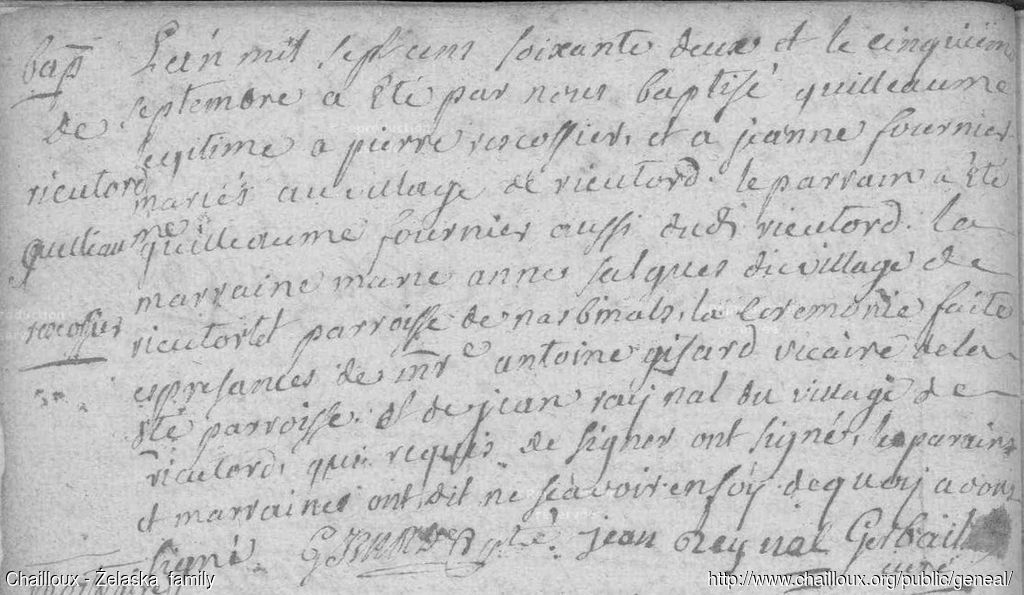 bap̄
de
rieutord
guilleaume
roscossier
L'an mil sept cens soixante deux et le cinquiem
septembre a été par nous baptisé guilleaume
legitime a pierre roscossier, et a jeanne fournier
mariés au village de rieutord. le parrain a été
guilleaume fournier aussi dudt rieutord. la
marraine marie anne salques du village de
rieutort parroisse de nasbinals, la ceremonie faite
es presances de mre antoine gisard vicaire de la
dte parroisse. et de jean raynal du village de
rieutord, qui requis de signer ont signé, le parain
et marraine ont dit ne scavoir en foy de quoy avons
signé. jean Reynal Gerbail
curé
Chailloux - Żelaska family
http://www.chailloux.org/public/geneal/